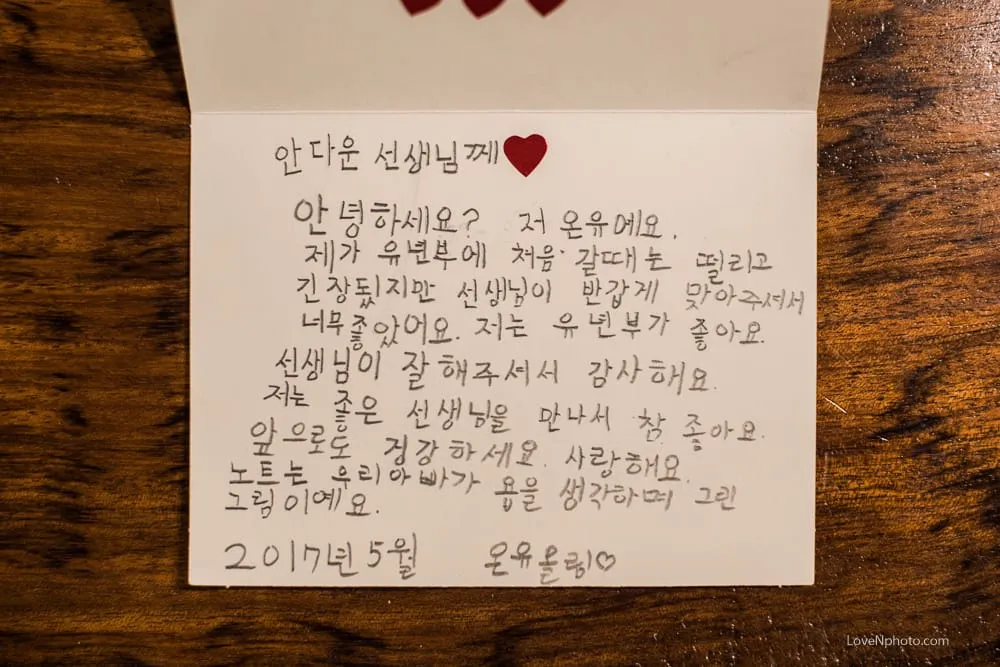 안다운 선생님께
안녕하세요? 저 온유예요.
제가 유년부에 처음 갈때는 떨리고
긴장됬지만 선생님이 반갑게 맞아주셔서
너무좋았어요. 저는 유년부가 좋아요.
선생님이 잘해주셔서 감사해요.
저는 좋은 선생님을 만나서 참 좋아요.
앞으로도 겅강하세요. 사랑해요.
노트는 우리아빠가 용을 생각하며 그린
그림이예요.
2017년 5월 온유올림♡
LoveNphoto.com